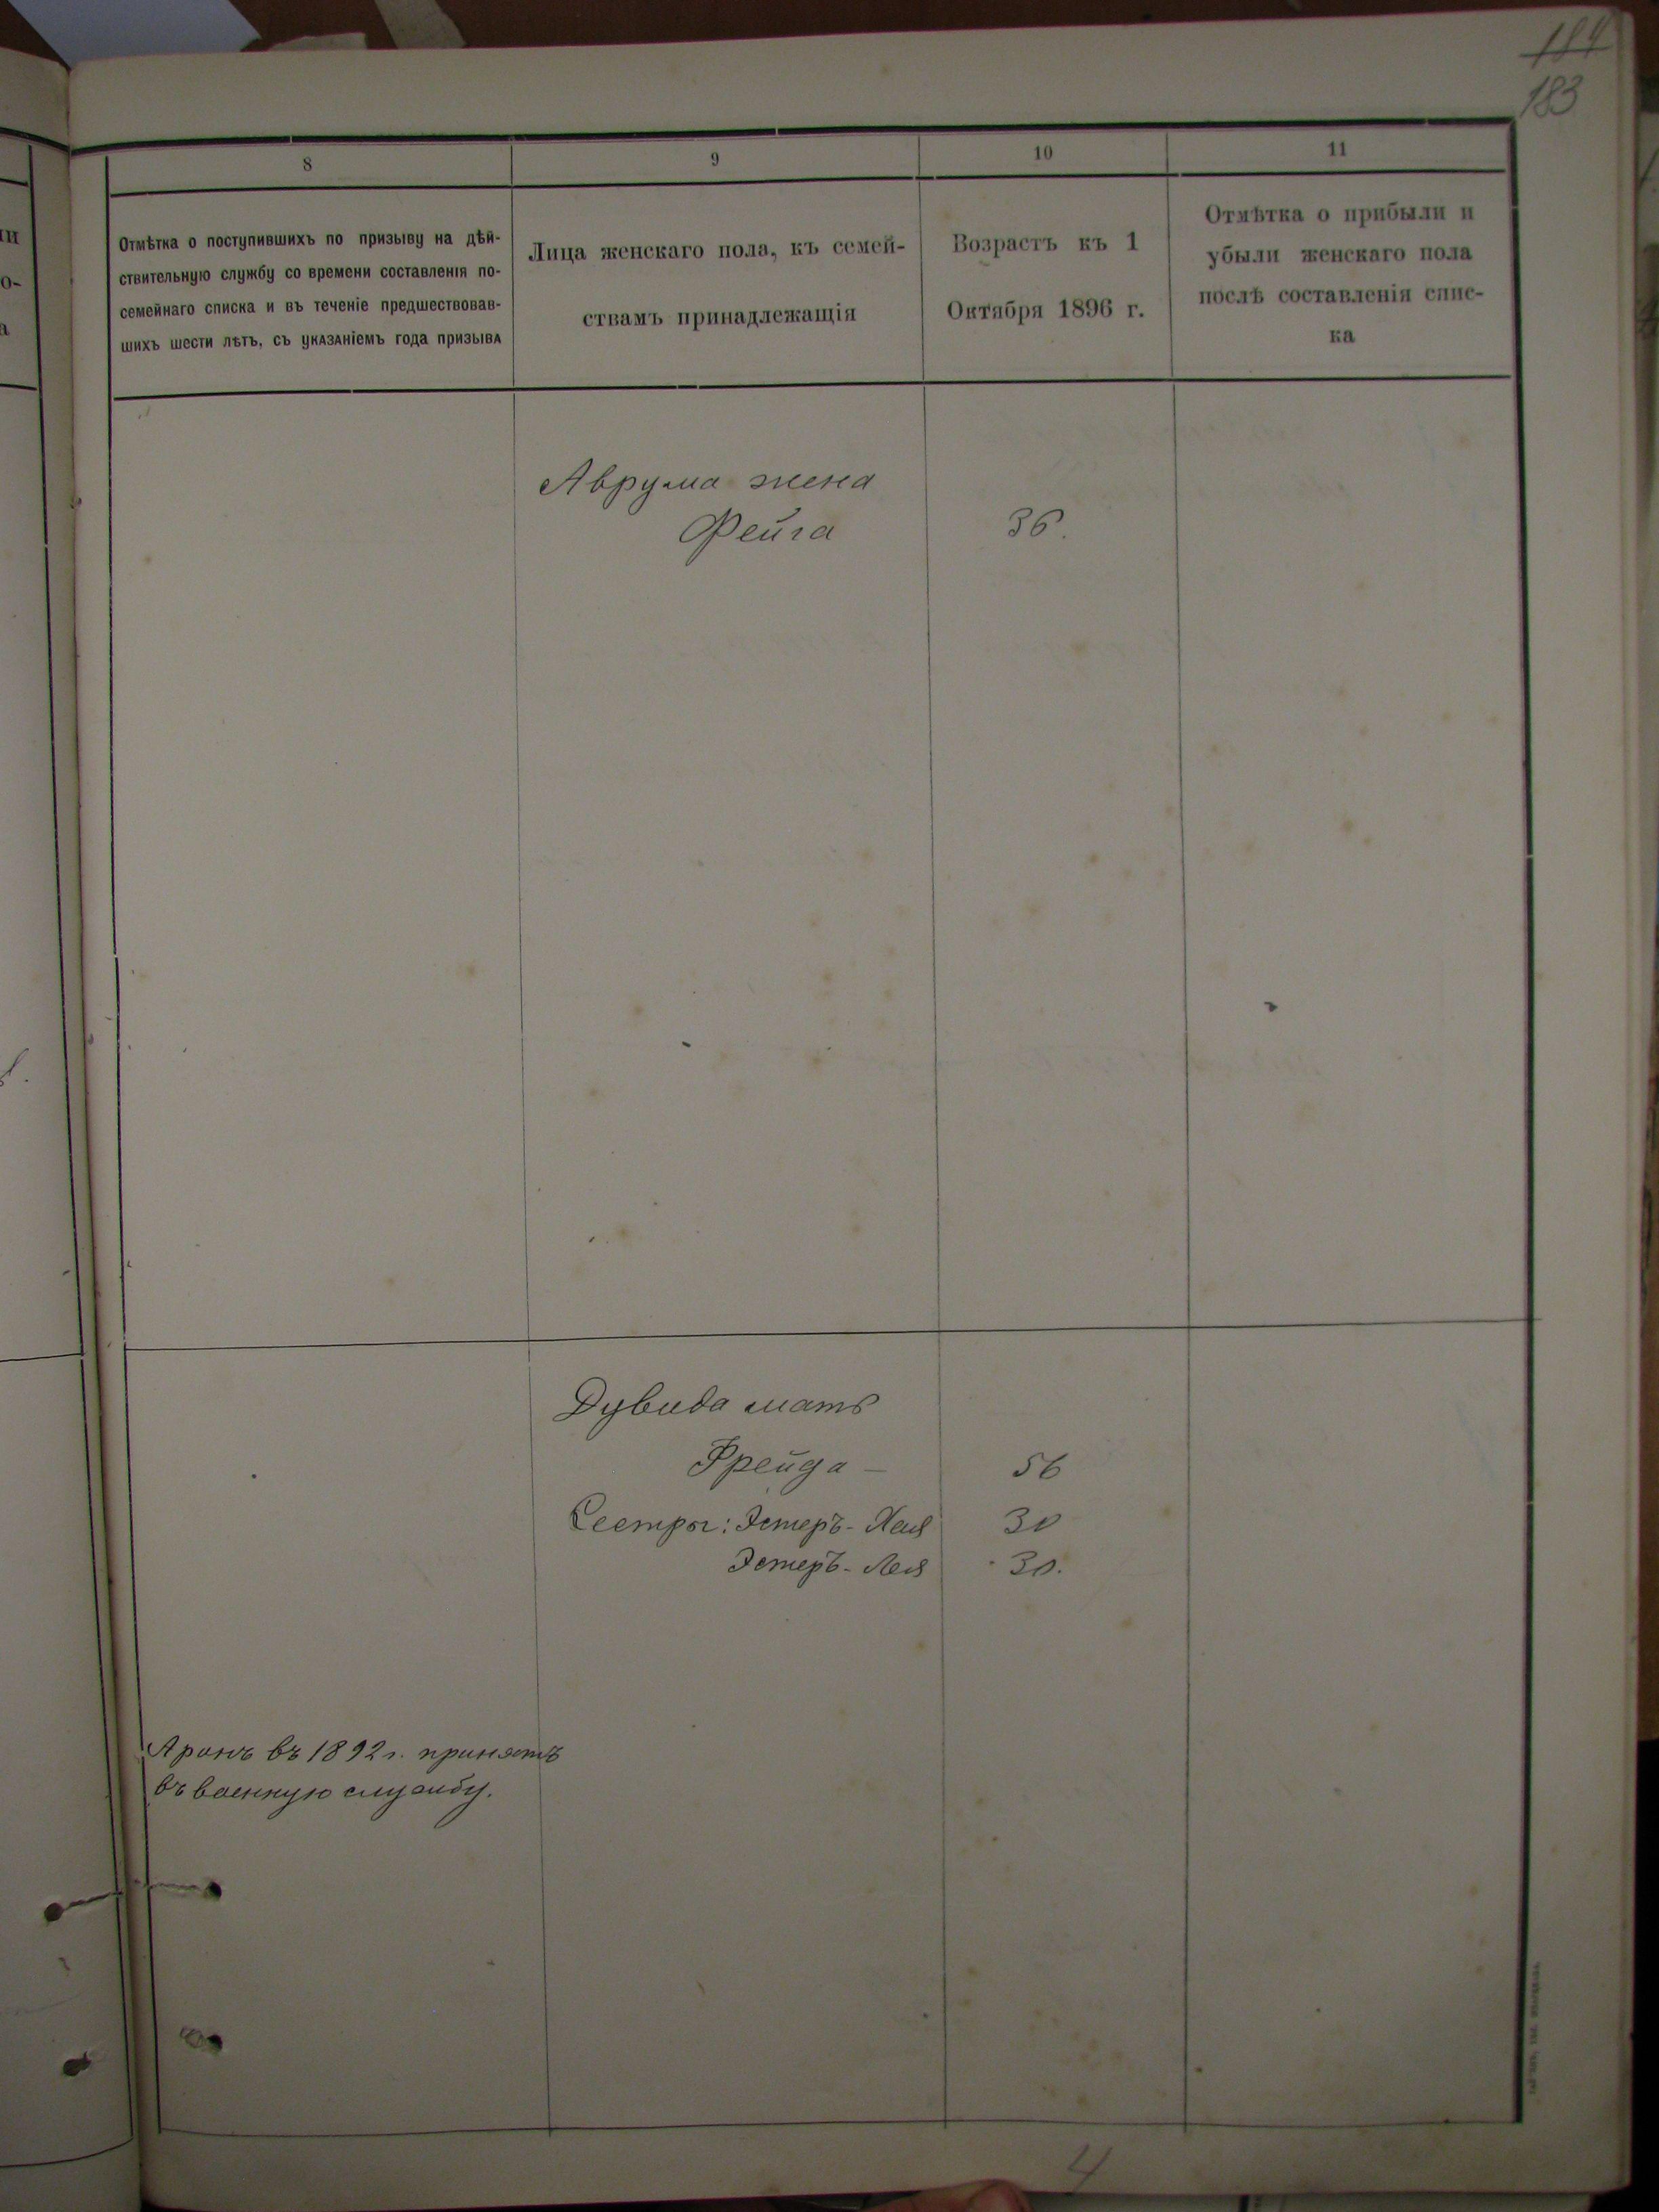 184
183
8
9
10
11
Отмѣтка о поступившихъ по призыву на дѣй-
ствительную службу со времени составленія по-
семейнаго списка и въ теченіе предшествовав-
шихъ шести лѣтъ, съ указаніемъ года призыва
Лица женскаго пола, къ семей-
ствамъ принадлежащія
Возрастъ къ 1
Октября 1896 г.
Отмѣтка о прибыли и
убыли женскаго пола
послѣ составленія спис-
ка
Аврума жена
Фейга 36.
Дувида мать
Фрейда — 56
Сестры: Эстеръ-Хая 30
Эстеръ-Лея 30.
Аронъ въ 1892 г. принятъ
въ военную службу.
4